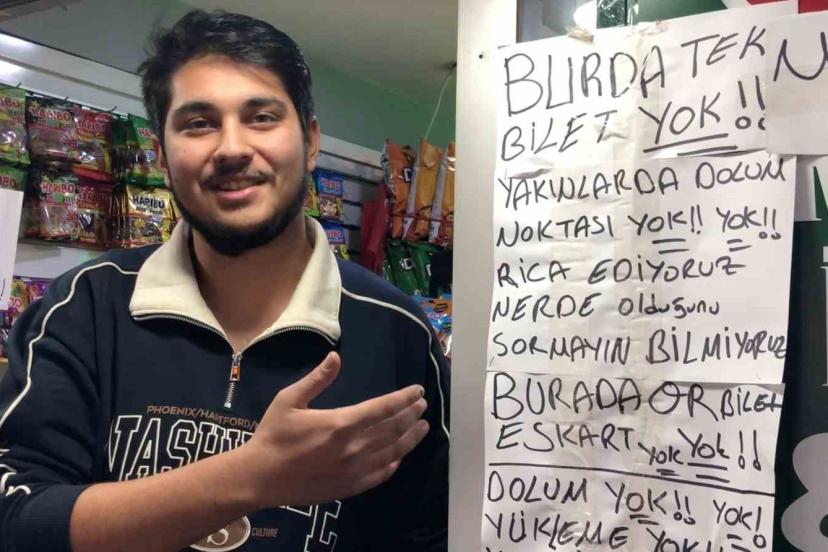 BURDA TEK
BİLET YOK!!
YAKINLARDA DOLUM
NOKTASI YOK!! YOK!!
RİCA EDİYORUZ
NERDE olduğunu
SORMAYIN BİLMİYORUZ
BURADA QR BİLET
ESKART YOK YOK!!
DOLUM YOK!! YOK!
YÜKLEME YOK!!
N
8
HARIBO
HARIBO
HARIBO
HARIBO
PHOENIX/HARTFORD/
NASHVILLE
CULTURE